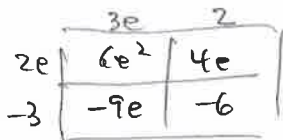 3e 2
2e 6e² 4e
-3 -9e -6